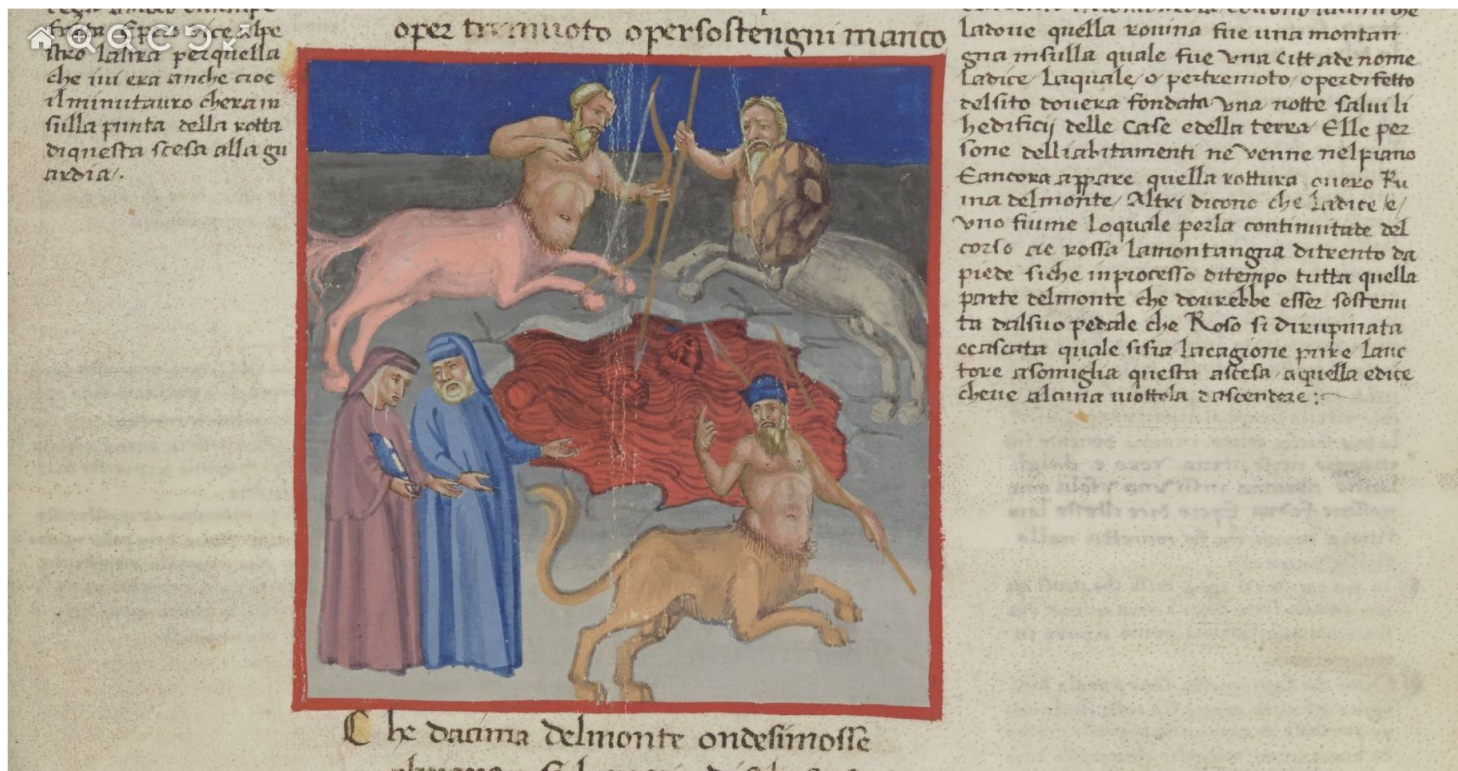 stro lastra per quella
che iui era anche cioe
il minutauro chera in
sulla punta della rotta
di questa scesa alla gu
ardia
oper tremuoto opersostengni manco
ladoue quella rouina fue una montan
gna insulla quale fue vna citt ade nome
Ladice Laquale o pertremoto operdifetto
delsito douera fondata vna notte salui li
hedificij delle case edella terra Elle per
sone delliabitamenti ne venne nelpiano
Eancora appare quella rottura ouero Ru
ina delmonte Altri dicono che Ladice e
vno fiume loquale perla continuitade del
corso rossa lamontangna ditrento da
piede siche inprocesso ditempo tutta quella
parte delmonte che dourebbe esser sostenu
ta dalsuo pedale che Roso si dirupinata
ecascata quale sisia lacagione pure lauc
tore asomiglia questa ascesa aquella edice
cheue alcuna uiottola dascendere
Che dacima delmonte ondesimosse